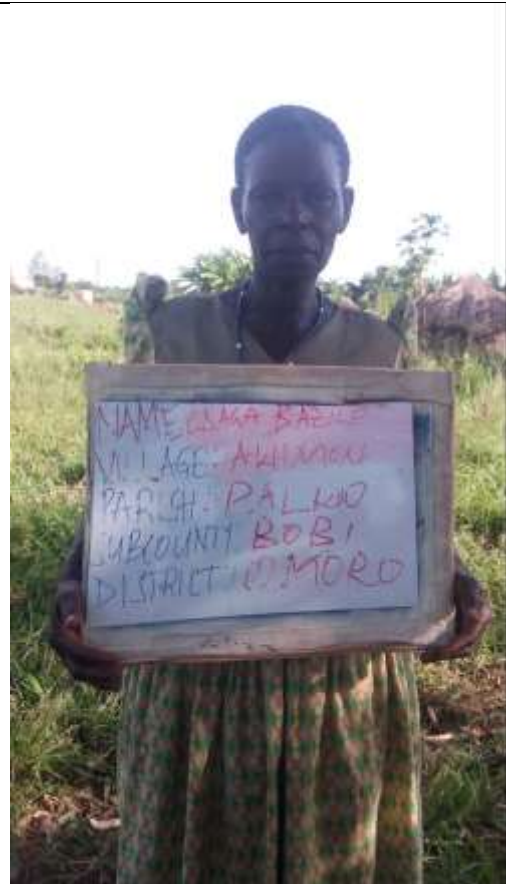 NAME: OJAGA BAZILO
VILLAGE:
PARISH: PALWO
SUBCOUNTY BOBI
DISTRICT: OMORO